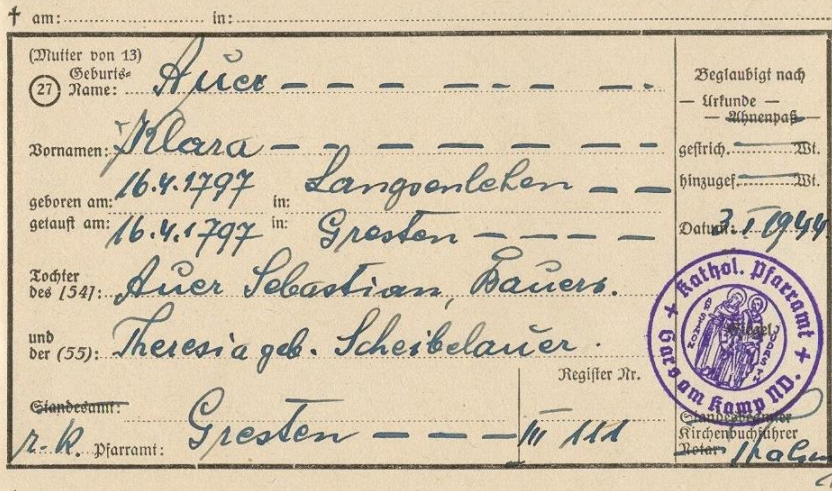 † am: in:
(Mutter von 13)
(27) Geburts-Name: Auer
Vornamen: Klara
geboren am: 16.4.1797 in: Langsenlehen
getauft am: 16.4.1797 in: Gresten
Tochter des [54]: Auer Sebastian, Bauers.
und der (55): Theresia geb. Scheibelauer.
Register Nr.
Standesamt:
r.-k. Pfarramt: Gresten III 111
Beglaubigt nach
— Urkunde —
— Ahnenpaß —
gestrich. Wt.
hinzugef. Wt.
Datum: 3.I.1944
+ Kathol. Pfarramt +
Gars am Kamp ND.
Siegel
Standesbeamter
Kirchenbuchführer
Notar